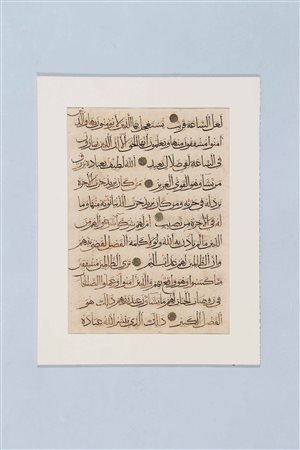 لعل الساعة قريب يستعجل بها الذين لا يؤمنون بها والذين
امنوا مشفقون منها ويعلمون انها الحق الا ان الذين يمارون
في الساعة لفي ضلال بعيد الله لطيف بعباده يرزق
من يشاء وهو القوي العزيز من كان يريد حرث الاخرة
نزد له في حرثه ومن كان يريد حرث الدنيا نؤته منها وما
له في الاخرة من نصيب ام لهم شركاء شرعوا لهم من
الدين ما لم يأذن به الله ولولا كلمة الفصل لقضي بينهم
وان الظالمين لهم عذاب اليم ترى الظالمين مشفقين
مما كسبوا وهو واقع بهم والذين امنوا وعملوا الصالحات
في روضات الجنات لهم ما يشاؤن عند ربهم ذلك هو
الفضل الكبير ذلك الذي يبشر الله عباده